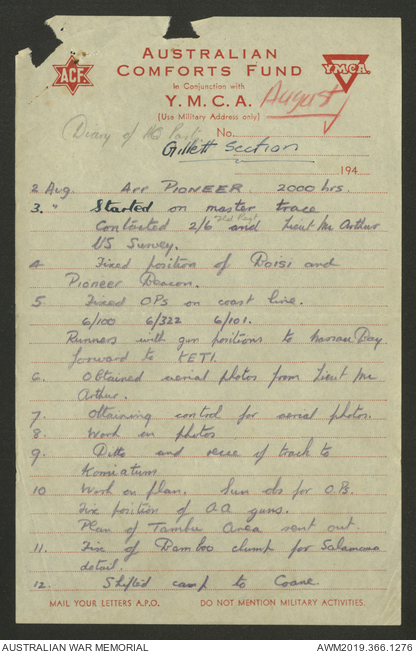 AUSTRALIAN
COMFORTS FUND
A.C.F.
Y.M.C.A.
In Conjunction with
Y. M. C. A.
August
(Use Military Address only)
Diary of HQ Party No.
Gillett Section
194
2 Aug. Arr PIONEER. 2000 hrs.
3. " Started on master trace
Contacted 2/6 Fld Regt and Lieut Mc Arthur
US Survey.
4 Fixed position of BOISI and
Pioneer Beacon.
5. Fixed OPs on coast line.
6/100 6/322 6/101.
Runners with gun positions to Nassau Bay
forward to KETI.
6. Obtained aerial photos from Lieut Mc
Arthur.
7. Obtaining control for aerial photos.
8. Work on photos
9. Ditto and recce of track to
Komiatum
10 Work on plan. Sun obs for O.Ps.
Fix position of AA guns.
Plan of Tambu Area sent out.
11. Fix of Bamboo clump for Salamaua
detail.
12. Shifted camp to Coane.
MAIL YOUR LETTERS A.P.O. DO NOT MENTION MILITARY ACTIVITIES.
AUSTRALIAN WAR MEMORIAL AWM2019.366.1276